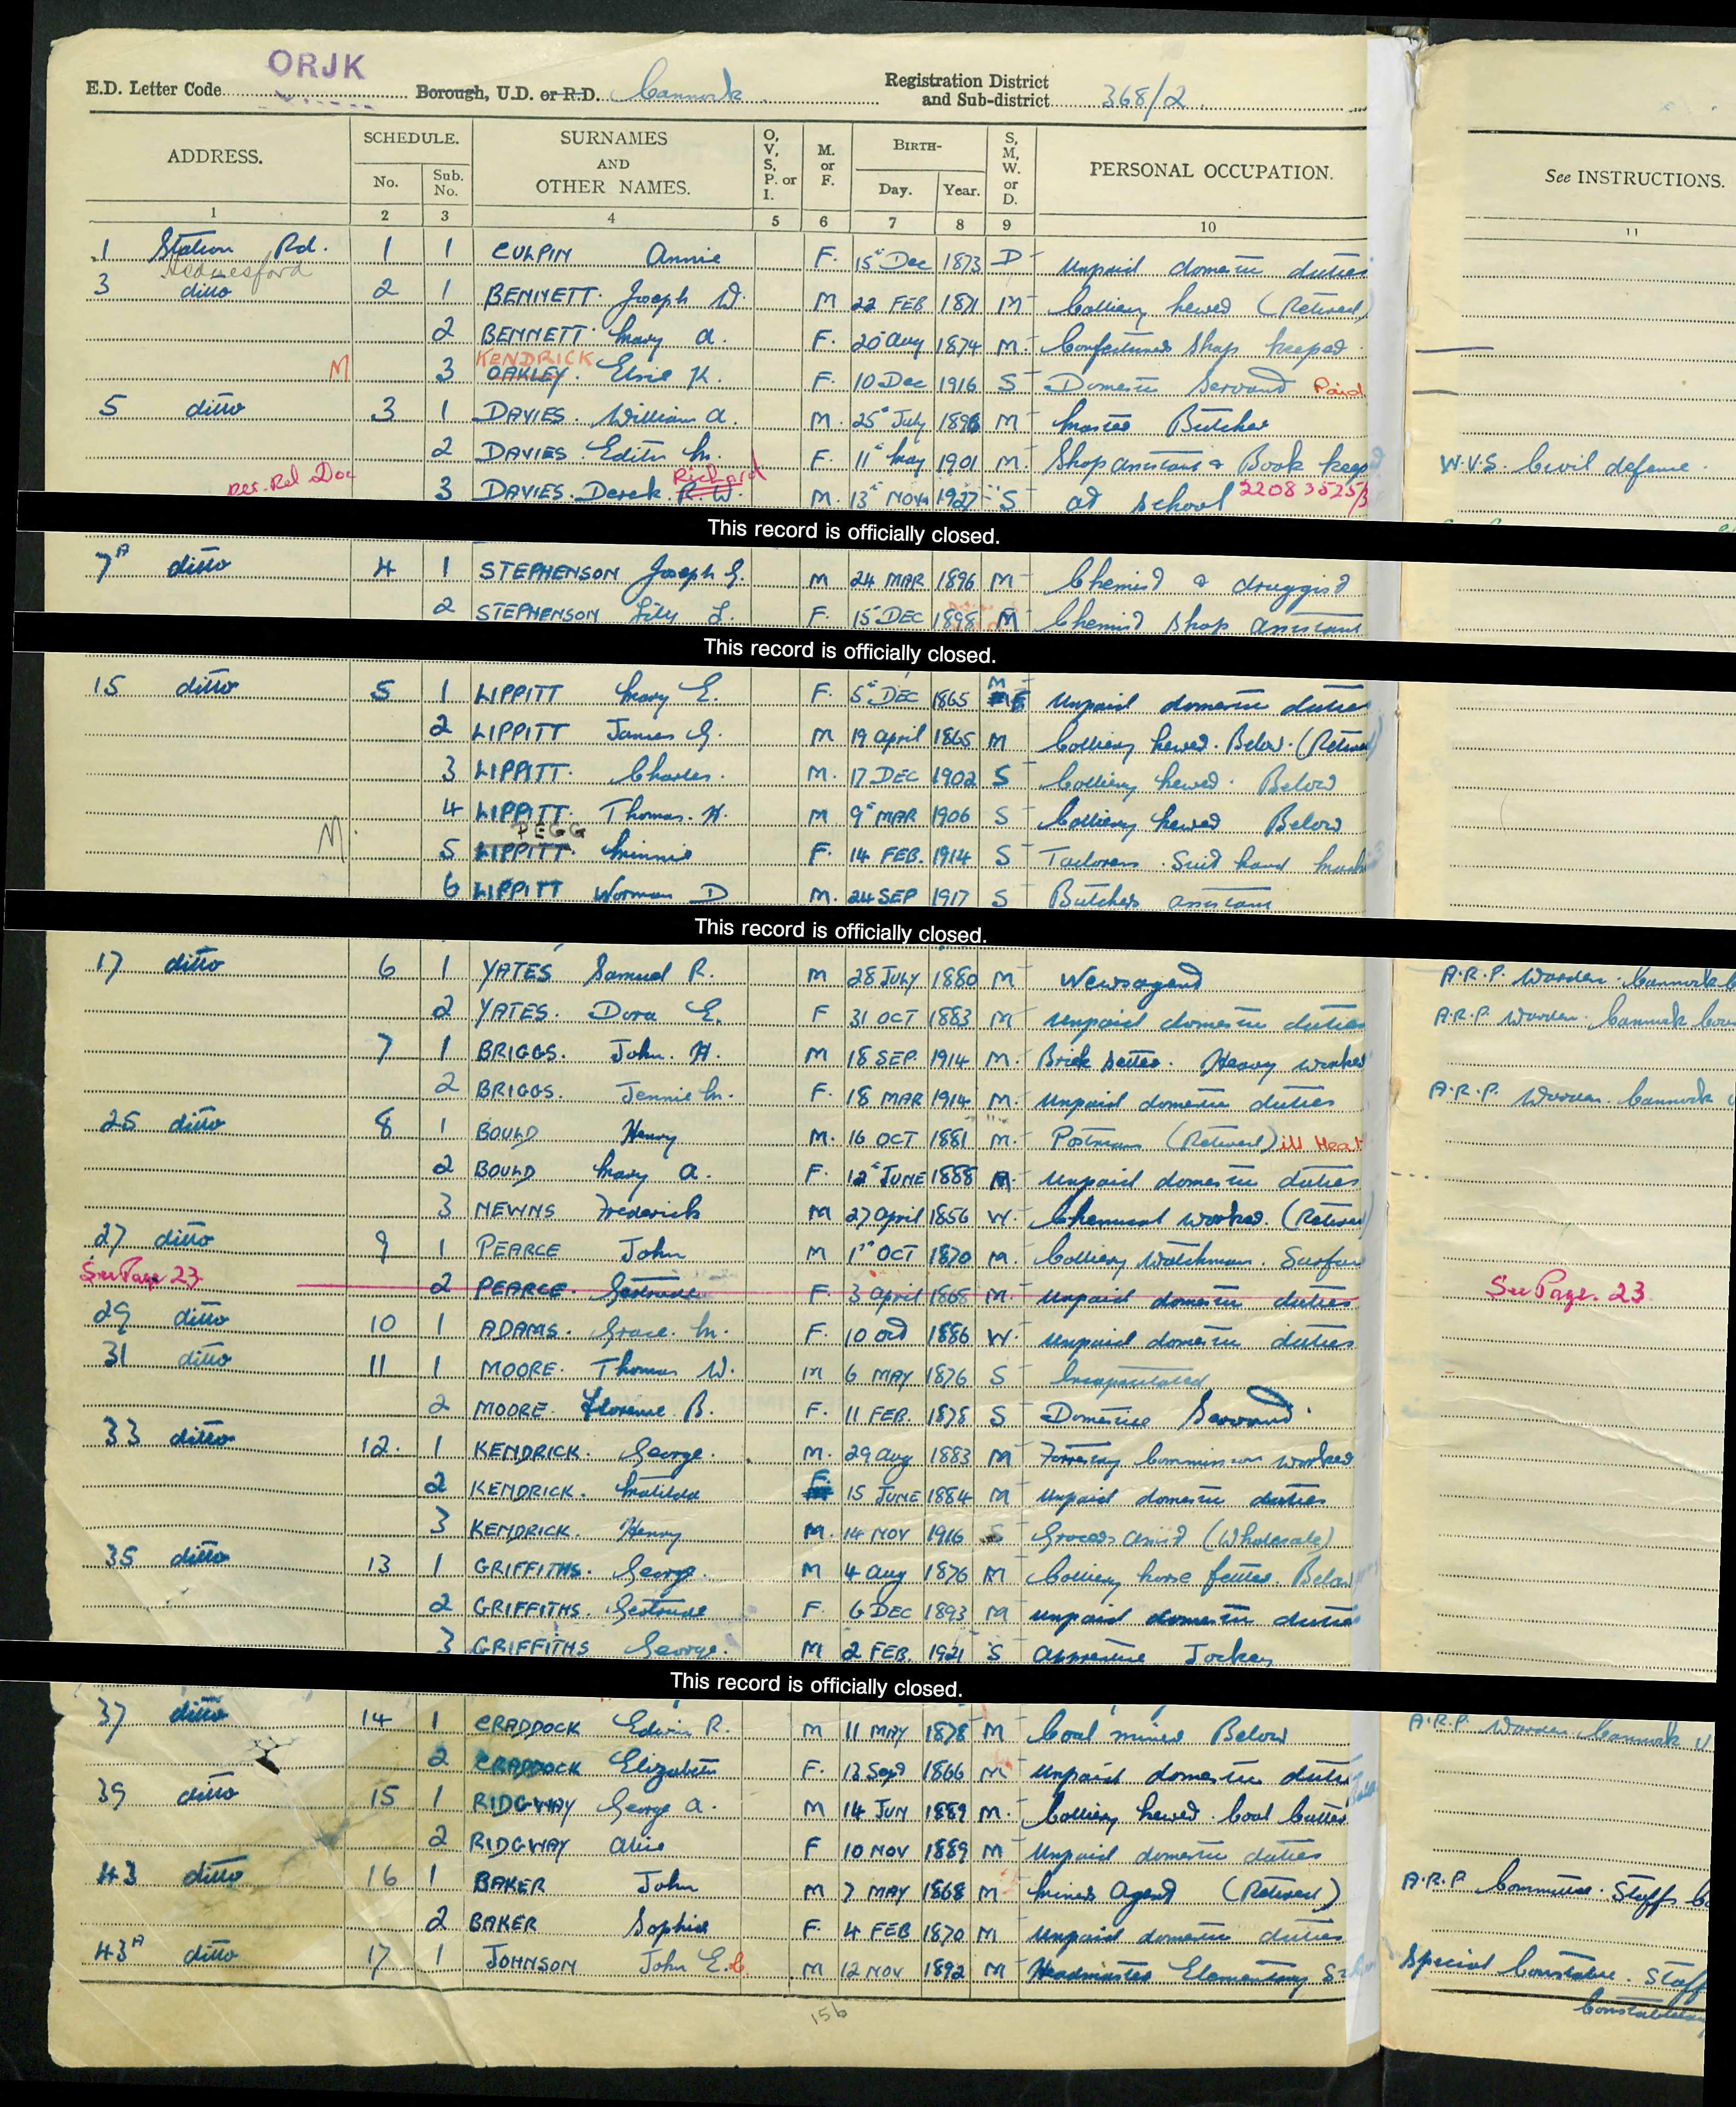 ORJK
E.D. Letter Code Borough, U.D. or R.D. Cannock Registration District and Sub-district 368/2
ADDRESS. SCHEDULE. No. Sub. No. SURNAMES AND OTHER NAMES. O, V, S, P. or I. M. or F. BIRTH- Day. Year. S, M, W. or D. PERSONAL OCCUPATION. See INSTRUCTIONS.
1 2 3 4 5 6 7 8 9 10 11
1 Station Rd. 1 1 CULPIN Annie F. 15 Dec 1873 D Unpaid domestic duties
Hednesford
3 ditto 2 1 BENNETT. Joseph W. M 22 FEB 1871 M Colliery hewer (Retired)
2 BENNETT Mary A. F. 20 Aug 1874 M. Confectioners Shop keeper
KENDRICK
M 3 OAKLEY. Elsie K. F. 10 Dec 1916 S Domestic Servant Paid
5 ditto 3 1 DAVIES. William A. M. 25 July 1896 M Master Butcher
2 DAVIES. Edith M. F. 11 May 1901 M. Shop assistant & Book keep W.V.S. Civil defence.
Richard
3 DAVIES. Derek R.W. M. 13 NOV 1927 S at school 22083525/3
This record is officially closed.
7A ditto 4 1 STEPHENSON Joseph G. M 24 MAR 1896 M Chemist & druggist
2 STEPHENSON Lily L. F. 15 DEC 1898 M Chemist Shop assistant
This record is officially closed.
15 ditto 5 1 LIPPITT Mary E. F. 5 DEC 1865 M Unpaid domestic duties
2 LIPPITT James G. M 19 April 1865 M Colliery hewer. Below. (Retired)
3 LIPPITT. Charles. M. 17 DEC 1902 S Colliery hewer. Below
4 LIPPITT. Thomas. H. M 9 MAR 1906 S Colliery hewer Below
PEGG
M. 5 LIPPITT. Minnie F. 14 FEB. 1914 S Tailoress. Suit hand
6 LIPPITT Norman D M. 24 SEP 1917 S Butchers assistant
This record is officially closed.
17 ditto 6 1 YATES Samuel R. M 28 JULY 1880 M Newsagent A.R.P. Warden. Cannock
2 YATES. Dora E. F 31 OCT 1883 M Unpaid domestic duties A.R.P. Warden. Cannock
7 1 BRIGGS. John. H. M 18 SEP. 1914 M. Brick setter. Heavy worker
2 BRIGGS. Jennie M. F. 18 MAR 1914 M. Unpaid domestic duties A.R.P. Warden. Cannock
25 ditto 8 1 BOULD Henry M. 16 OCT 1881 M. Postman (Retired) ill Heart
2 BOULD Mary A. F. 12 JUNE 1888 M. Unpaid domestic duties
3 NEWNS Frederick M 27 April 1856 W. Chemical worker. (Retired)
27 ditto 9 1 PEARCE John M 1st OCT 1870 M. Colliery Watchman. Surface
See Page 23 2 PEARCE. Gertrude F. 3 April 1868 M. Unpaid domestic duties See Page. 23
29 ditto 10 1 ADAMS. Grace. M. F. 10 Oct 1886 W. Unpaid domestic duties
31 ditto 11 1 MOORE. Thomas W. M 6 MAY 1876 S Incapacitated
2 MOORE. Florence B. F. 11 FEB. 1878 S Domestic Servant.
33 ditto 12. 1 KENDRICK. George. M. 29 Aug 1883 M Forestry Commission worker
2 KENDRICK. Matilda F. 15 JUNE 1884 M Unpaid domestic duties
3 KENDRICK. Henry M. 14 NOV 1916 S Grocers Assist (Wholesale)
35 ditto 13 1 GRIFFITHS. George. M 4 Aug 1876 M Colliery horse fettler. Below
2 GRIFFITHS. Gertrude F. 6 DEC 1893 M Unpaid domestic duties
3 GRIFFITHS George. M 2 FEB. 1921 S Apprentice Jockey
This record is officially closed.
37 ditto 14 1 CRADDOCK Edwin R. M 11 MAY 1878 M Coal miner Below A.R.P. Warden. Cannock U
2 CRADDOCK Elizabeth F. 13 Sept 1866 M Unpaid domestic duties
39 ditto 15 1 RIDGWAY George A. M 14 JUN 1889 M. Colliery hewer. Coal Cutter
2 RIDGWAY Alice F 10 NOV 1889 M Unpaid domestic duties
43 ditto 16 1 BAKER John M 7 MAY 1868 M Miners Agent (Retired) A.R.P. Committee. Staffs
2 BAKER Sophia F. 4 FEB 1870 M Unpaid domestic duties
43A ditto 17 1 JOHNSON John E.C. M 12 NOV 1892 M Headmaster Elementary Special Constable. Staff
Constabulary
156